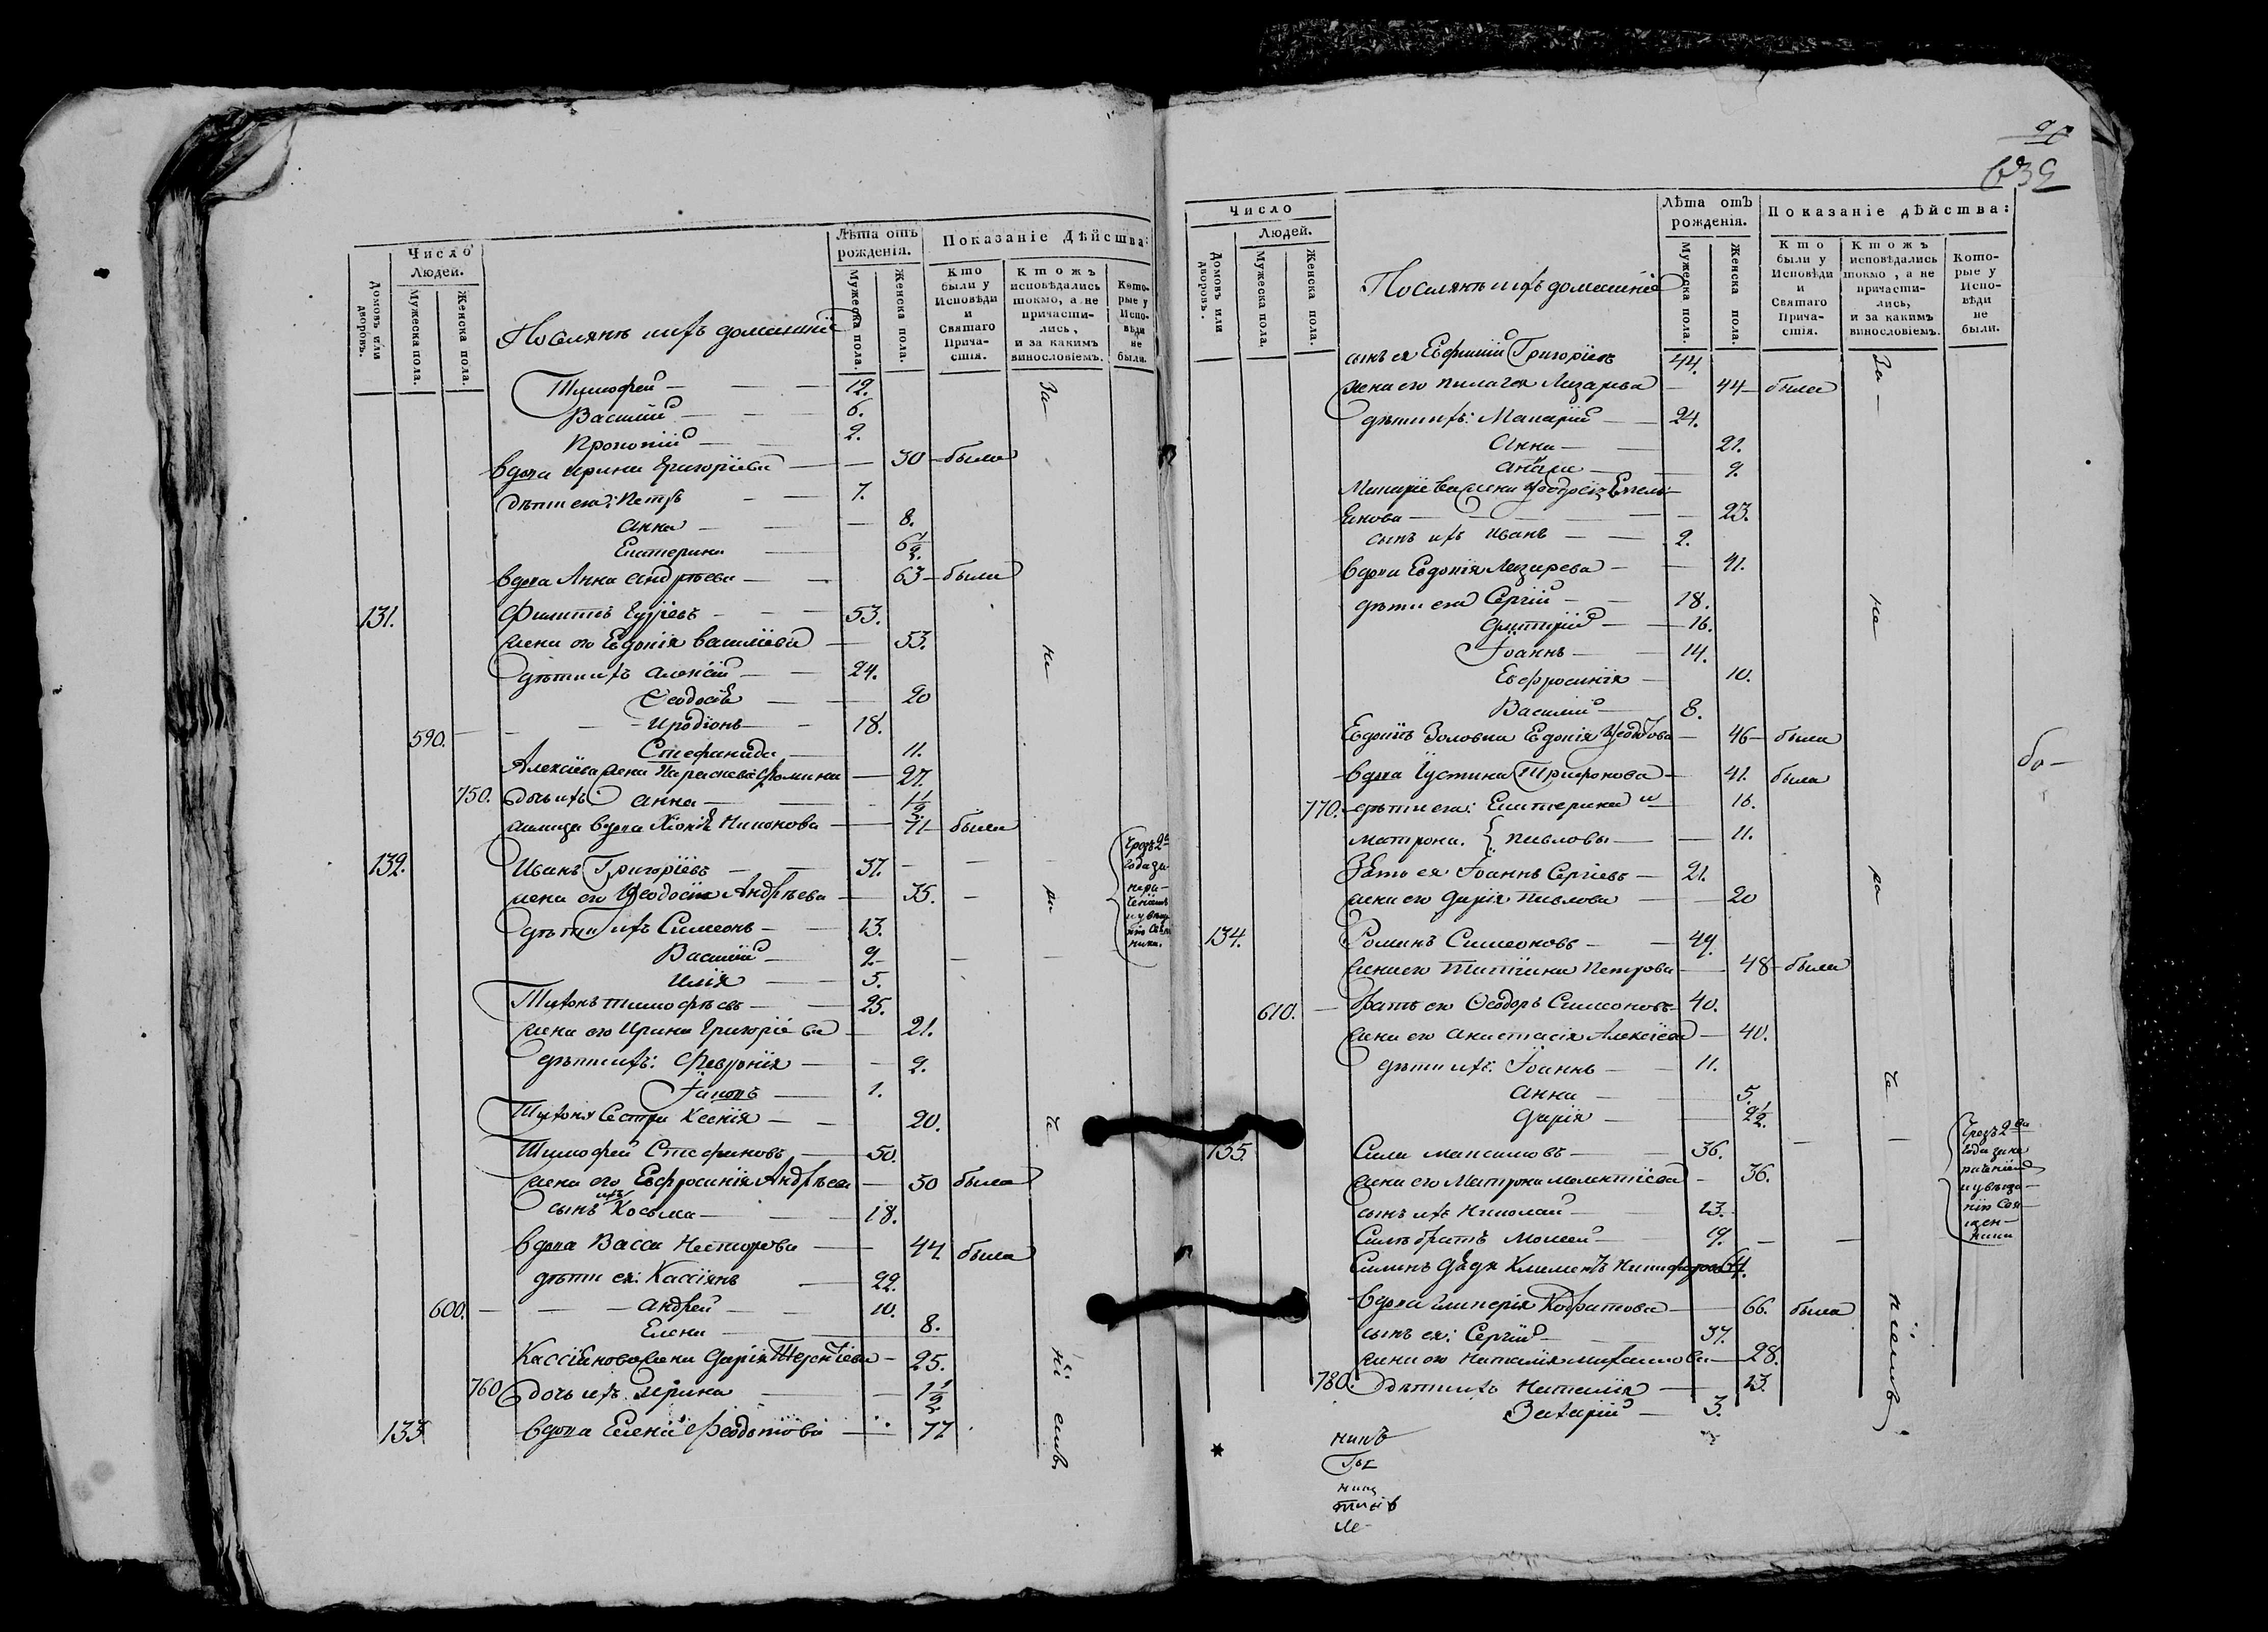 Число
Людей.
Домовъ или дворовъ.
Мужеска пола.
Женска пола.
Поселянъ ихъ домашніе
Лѣта отъ рожденія.
Мужеска пола.
Женска пола.
Показаніе Дѣйства:
Кто были у Исповѣди и Святаго Прича-стія.
Ктожъ исповѣдались токмо, а не причасти-лись, и за какимъ винословіемъ.
Кото-рые у Испо-вѣди не были.
Тимофей — 12.
Василій — 6.
Прокопій — 2.
вдова Ирина Григоріева — 30 — была
дѣти ея: Петръ — 7.
Анна — 8.
Екатерина — 6½.
вдова Анна Андрѣева — 63 — была
131. Филиппъ Гурьевъ — 53.
жена его Евдокія Василіева — 53.
дѣти ихъ Алексій — 24.
Феодосія — 20
590. — Иродіонъ — 18.
Стефанида — 11.
Алексіева жена Параскева Фомина — 27.
750. дочь ихъ Анна — 1½
вдова Хіонія — 71 — была
132. Иванъ Григоріевъ — 37.
жена его Феодосія Андрѣева — 35.
дѣти ихъ Симеонъ — 13.
Василій — 9.
Илія — 5.
Тихонъ Тимофѣевъ — 25.
жена его Ирина Григоріева — 21.
дѣти ихъ: Февронія — 2.
Іаковъ — 1.
Тихона Сестра Ксенія — 20.
Тимофей Стефановъ — 50.
жена его Евфросинія Андрѣева — 50 была
сынъ ихъ Косьма — 18.
вдова Васса Несторова — 44. была
дѣти ея: Кассіянъ — 22.
600. — Андрей — 10.
Елена — 8.
Кассіянова жена Дарія Терентіева — 25.
760 дочь ихъ Ирина — 1½
133. вдова Елена Феодотова — 77
Число
Людей.
Домовъ или дворовъ.
Мужеска пола.
Женска пола.
Поселянъ ихъ домашніе
Лѣта отъ рожденія.
Мужеска пола.
Женска пола.
Показаніе дѣйства:
Кто были у Исповѣди и Святаго Прича-стія.
Ктожъ исповѣдались токмо, а не причасти-лись, и за какимъ винословіемъ.
Кото-рые у Испо-вѣди не были.
сынъ ея Евфимій Григоріевъ 44.
жена его Пелагея Лазарева — 44 — была
дѣти ихъ: Макарій — 24.
Анна — 21.
9.
Макаріева жена Феодосія Емель-
янова — 23.
сынъ ихъ Иванъ — 2.
вдова Евдокія Лазарева — 41.
дѣти ея Сергій — 18.
Дмитрій — 16.
Іоаннъ — 14.
Евфросинія — 10.
Василій — 8.
Золовка Евдокія — 46 — была
вдова Іустина Трифонова — 41. была
770. дѣти ея: Екатерина и 16.
Матрона. Павловы — 11.
Зять ея Іоаннъ Сергіевъ — 21.
жена его Дарія Павлова — 20
134. Романъ Симеоновъ — 49.
жена его Татіана Петрова — 48 — была
610. — братъ его Феодоръ Симеоновъ — 40.
жена его Анастасія Алексіева — 40.
дѣти ихъ: Іоаннъ — 11.
Анна — 5.
Дарія — 2½.
135. Сила Максимовъ — 36.
жена его Матрона — 36.
сынъ ихъ Николай — 13.
Силы братъ Моисей — 19.
Силинъ Дядя Климентъ Никифоровъ 64.
вдова Гликерія Кодратова — 66. была
сынъ ея: Сергій — 37.
жена его Наталія Михаилова — 28.
780. Дѣти ихъ Наталія — 13.
Захарій — 3.